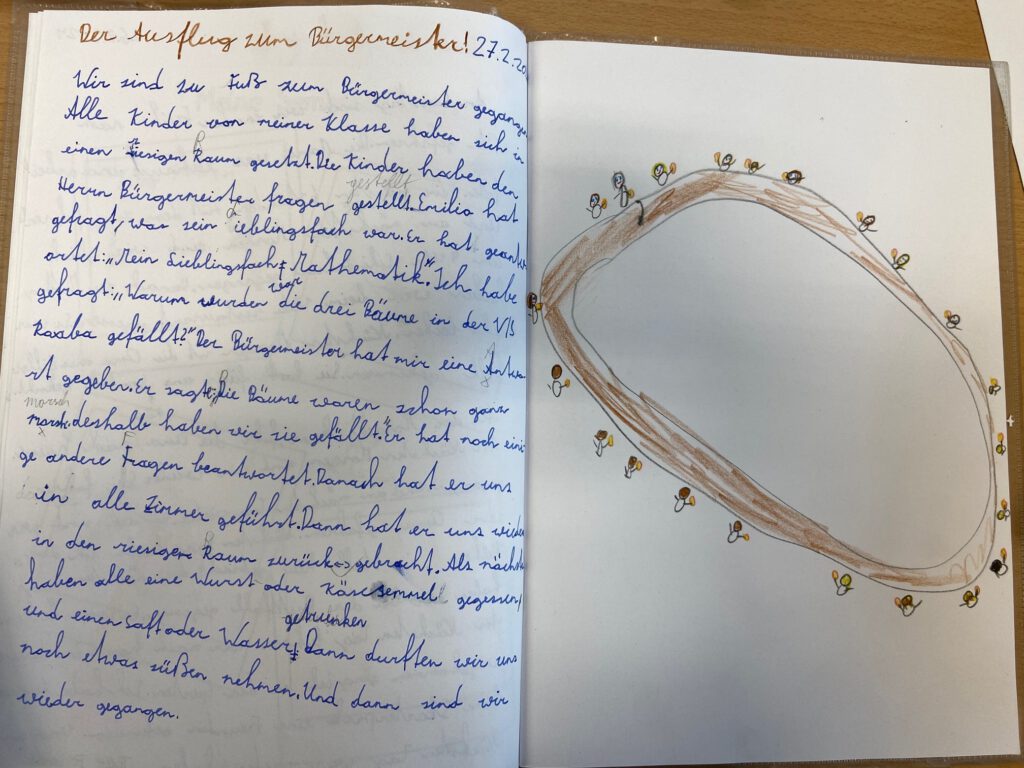 Der Ausflug zum Bürgermeister! 27.2.20
Wir sind zu Fuß zum Bürgermeister gegangen.
Alle Kinder von meiner Klasse haben sich in
einen riesigen Raum gesetzt. Die Kinder haben den
gestellt
Herrn Bürgermeister fragen gestellt. Emilio hat
gefragt, was sein Lieblingsfach war. Er hat geantw
ortet: „Mein Lieblingsfach Mathematik." Ich habe
war
gefragt: „Warum wurden die drei Bäume in der V/S
Roxaba gefällt?" Der Bürgermeister hat mir eine Antwo
rt gegeben. Er sagte: „Die Bäume waren schon ganz
morsch
deshalb haben wir sie gefällt." Er hat noch eini
ge andere Fragen beantwortet. Danach hat er uns
in alle Zimmer geführt. Dann hat er uns wieder
in den riesigen Raum zurück gebracht. Als nächstes
haben alle eine Wurst oder Käsesemmel gegessen,
getrunken
und einen Saft oder Wasser. Dann durften wir uns
noch etwas süßen nehmen. Und dann sind wir
wieder gegangen.